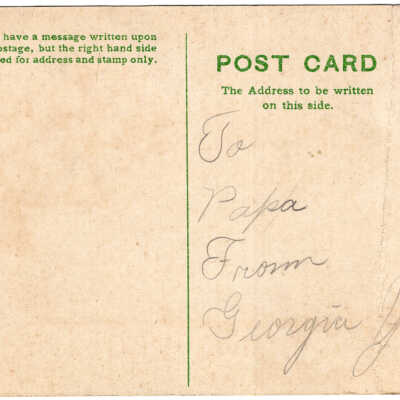 have a message written upon
ostage, but the right hand side
ed for address and stamp only.
POST CARD
The Address to be written
on this side.
To
Papa
From
Georgia